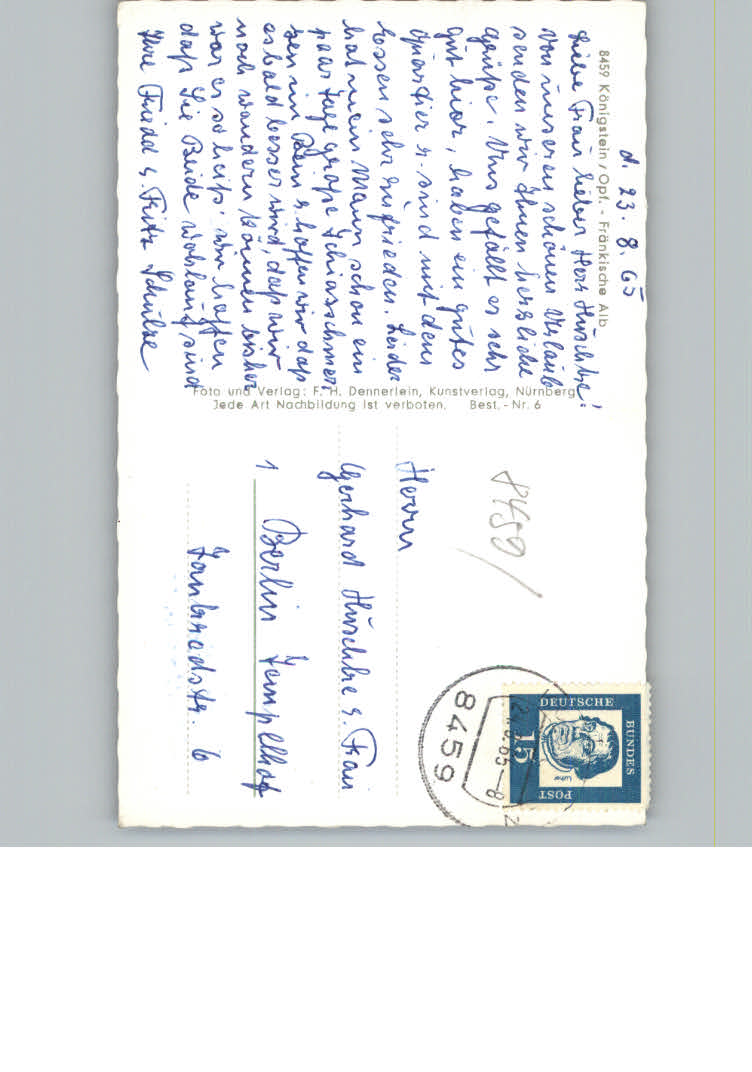 8459 Königstein/Opf. - Fränkische Alb
d. 23. 8. 65
Liebe Frau lieber Herr !
Von unserem schönen Urlaub
senden wir Ihnen herzliche
Grüße. Uns gefällt es sehr
gut hier, haben ein gutes
Quartier u. sind mit dem
Essen sehr zufrieden. Leider
hat mein Mann schon ein
paar Tage große Ischiasschmer-
zen im Bein u. hoffen wir daß
es bald besser wird, daß wir
noch wandern können bisher
war es so heiß. wir hoffen
daß Sie Beide wohlauf sind
Ihre Frieda u. Fritz Schulze
Foto und Verlag: F. H. Dennerlein, Kunstverlag, Nürnberg
Jede Art Nachbildung ist verboten. Best.-Nr. 6
8459
Herrn
Gerhard u. Frau
1 Berlin Tempelhof
6
DEUTSCHE
BUNDES
POST
15
Luther
8459